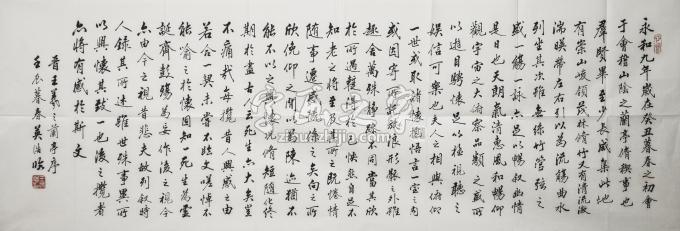 永和九年歲在癸丑暮春之初會
于會稽山陰之蘭亭脩稧事也
群賢畢至少長咸集此地
有崇山峻領茂林脩竹又有清流激
湍暎帶左右引以為流觴曲水
列坐其次雖無絲竹管弦之
盛一觴一詠亦足以暢敘幽情
是日也天朗氣清惠風和暢仰
觀宇宙之大俯察品類之盛所
以遊目騁懷足以極視聽之
娛信可樂也夫人之相與俯仰
一世或取諸懷抱悟言一室之內
或因寄所託放浪形骸之外雖
趣舍萬殊靜躁不同當其欣
於所遇暫得於己快然自足不
知老之將至及其所之既惓情
隨事遷感慨係之矣向之所
欣俛仰之間以為陳迹猶不
能不以之興懷況脩短隨化終
期於盡古人云死生亦大矣豈
不痛哉每攬昔人興感之由
若合一契未嘗不臨文嗟悼不
能喻之於懷固知一死生為虛
誕齊彭殤為妄作後之視今
亦由今之視昔悲夫故列敘時
人錄其所述雖世殊事異所
以興懷其致一也後之攬者
亦將有感於斯文
晉王羲之蘭亭序
暮春吳